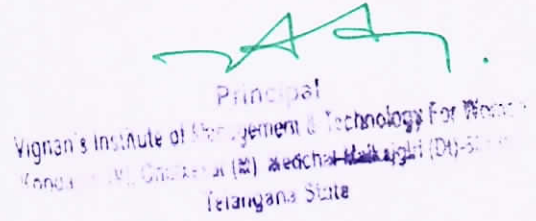 Principal
Vignan's Institute of Management & Technology For Women
(M) Medchal-Malkajgiri (Dt)-
Telangana State